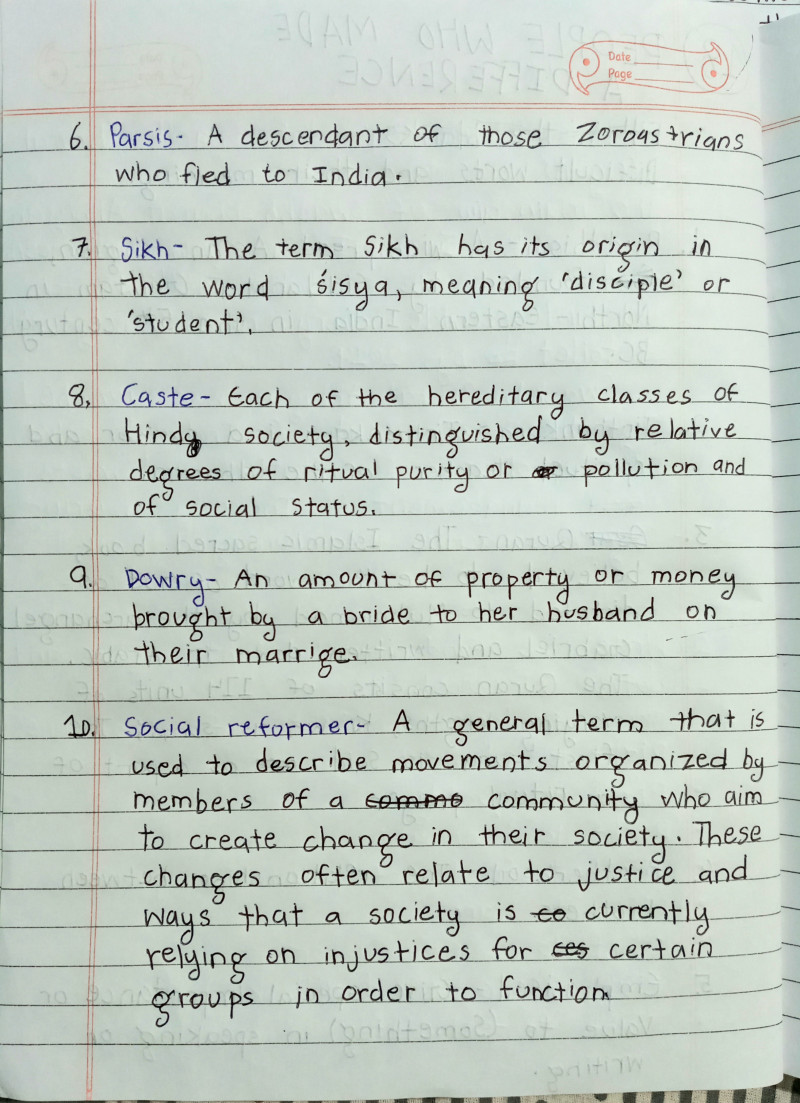 Date
Page
6. Parsis- A descendant of those Zoroastrians
who fled to India.
7. Sikh- The term Sikh has its origin in
the word śisya, meaning 'disciple' or
'student'.
8, Caste- Each of the hereditary classes of
Hindy society, distinguished by relative
degrees of ritual purity or pollution and
of social status.
9. Dowry- An amount of property or money
brought by a bride to her husband on
their marrige.
10. Social reformer- A general term that is
used to describe movements organized by
members of a commo community who aim
to create change in their society. These
changes often relate to justice and
ways that a society is co currently
relying on injustices for ces certain
groups in order to function